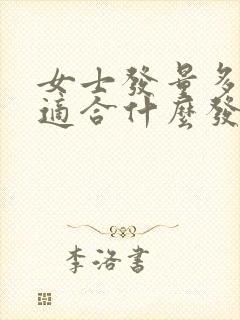 女士發量多
適合什麼發
李洛書